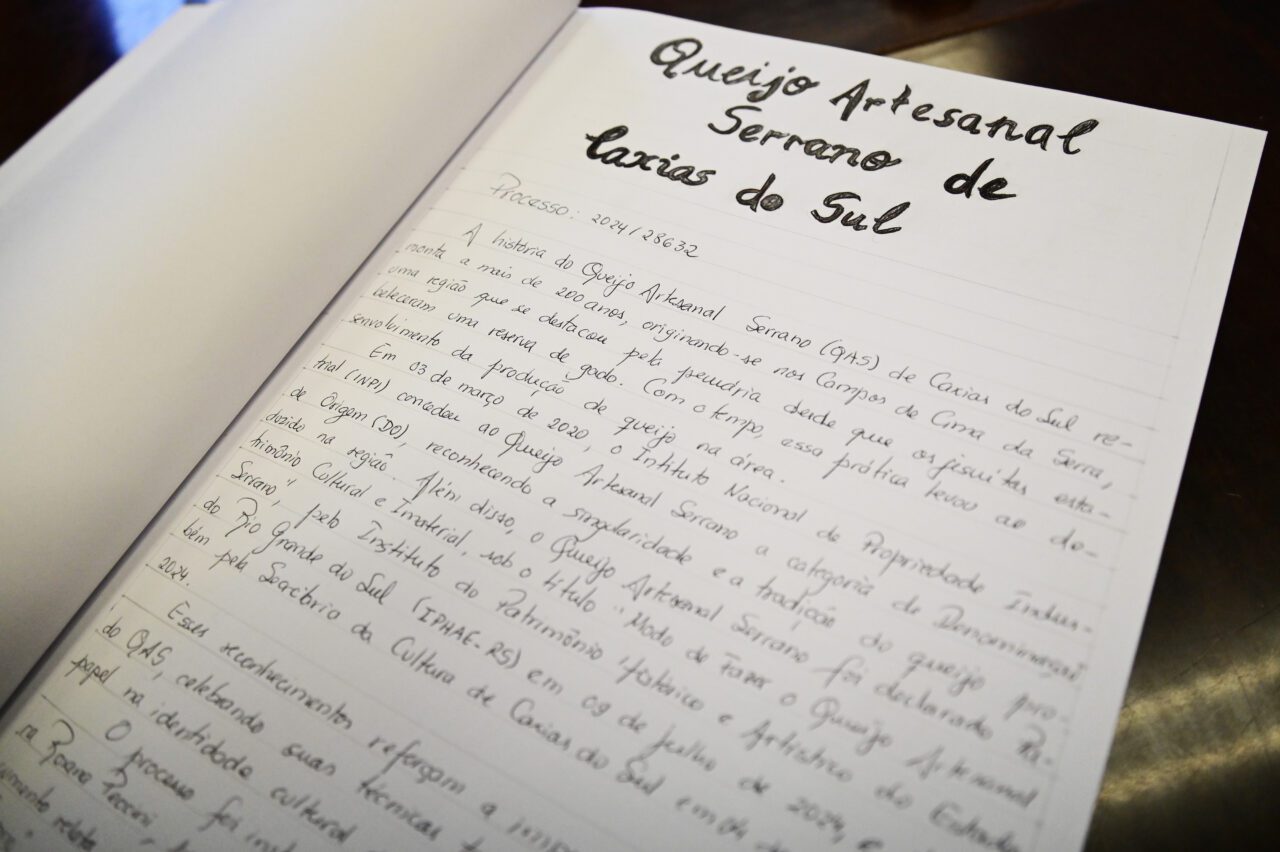 Queijo Artesanal
Serrano de
Caxias do Sul
Processo: 2024/28632
A história do Queijo Artesanal Serrano (QAS) de Caxias do Sul re-
monta a mais de 200 anos, originando-se nos Campos de Cima da Serra,
uma região que se destacou pela pecuária desde que os jesuítas esta-
beleceram uma reserva de gado. Com o tempo, essa prática levou ao de-
senvolvimento da produção de queijo na área.
Em 03 de março de 2020, o Intituto Nacional de Propriedade Indus-
trial (INPI) concedeu ao Queijo Artesanal Serrano a categoria de Denominação
de Origem (DO), reconhecendo a singularidade e a tradição do queijo pro-
duzido na região. Além disso, o Queijo Artesanal Serrano foi declarado Pa-
trimônio Cultural e Imaterial, sob o título "Modo de Fazer o Queijo Artesanal
Serrano", pelo Instituto do Patrimônio Histórico e Artístico do Estado
do Rio Grande do Sul (IPHAE-RS) em 09 de julho de 2024, e
bém pela Secretaria da Cultura de Caxias do Sul em
2024.
Esses reconhecimentos reforçam a
do QAS, celebrando suas técnicas
papel na identidade cultural
O processo foi
ra
relata